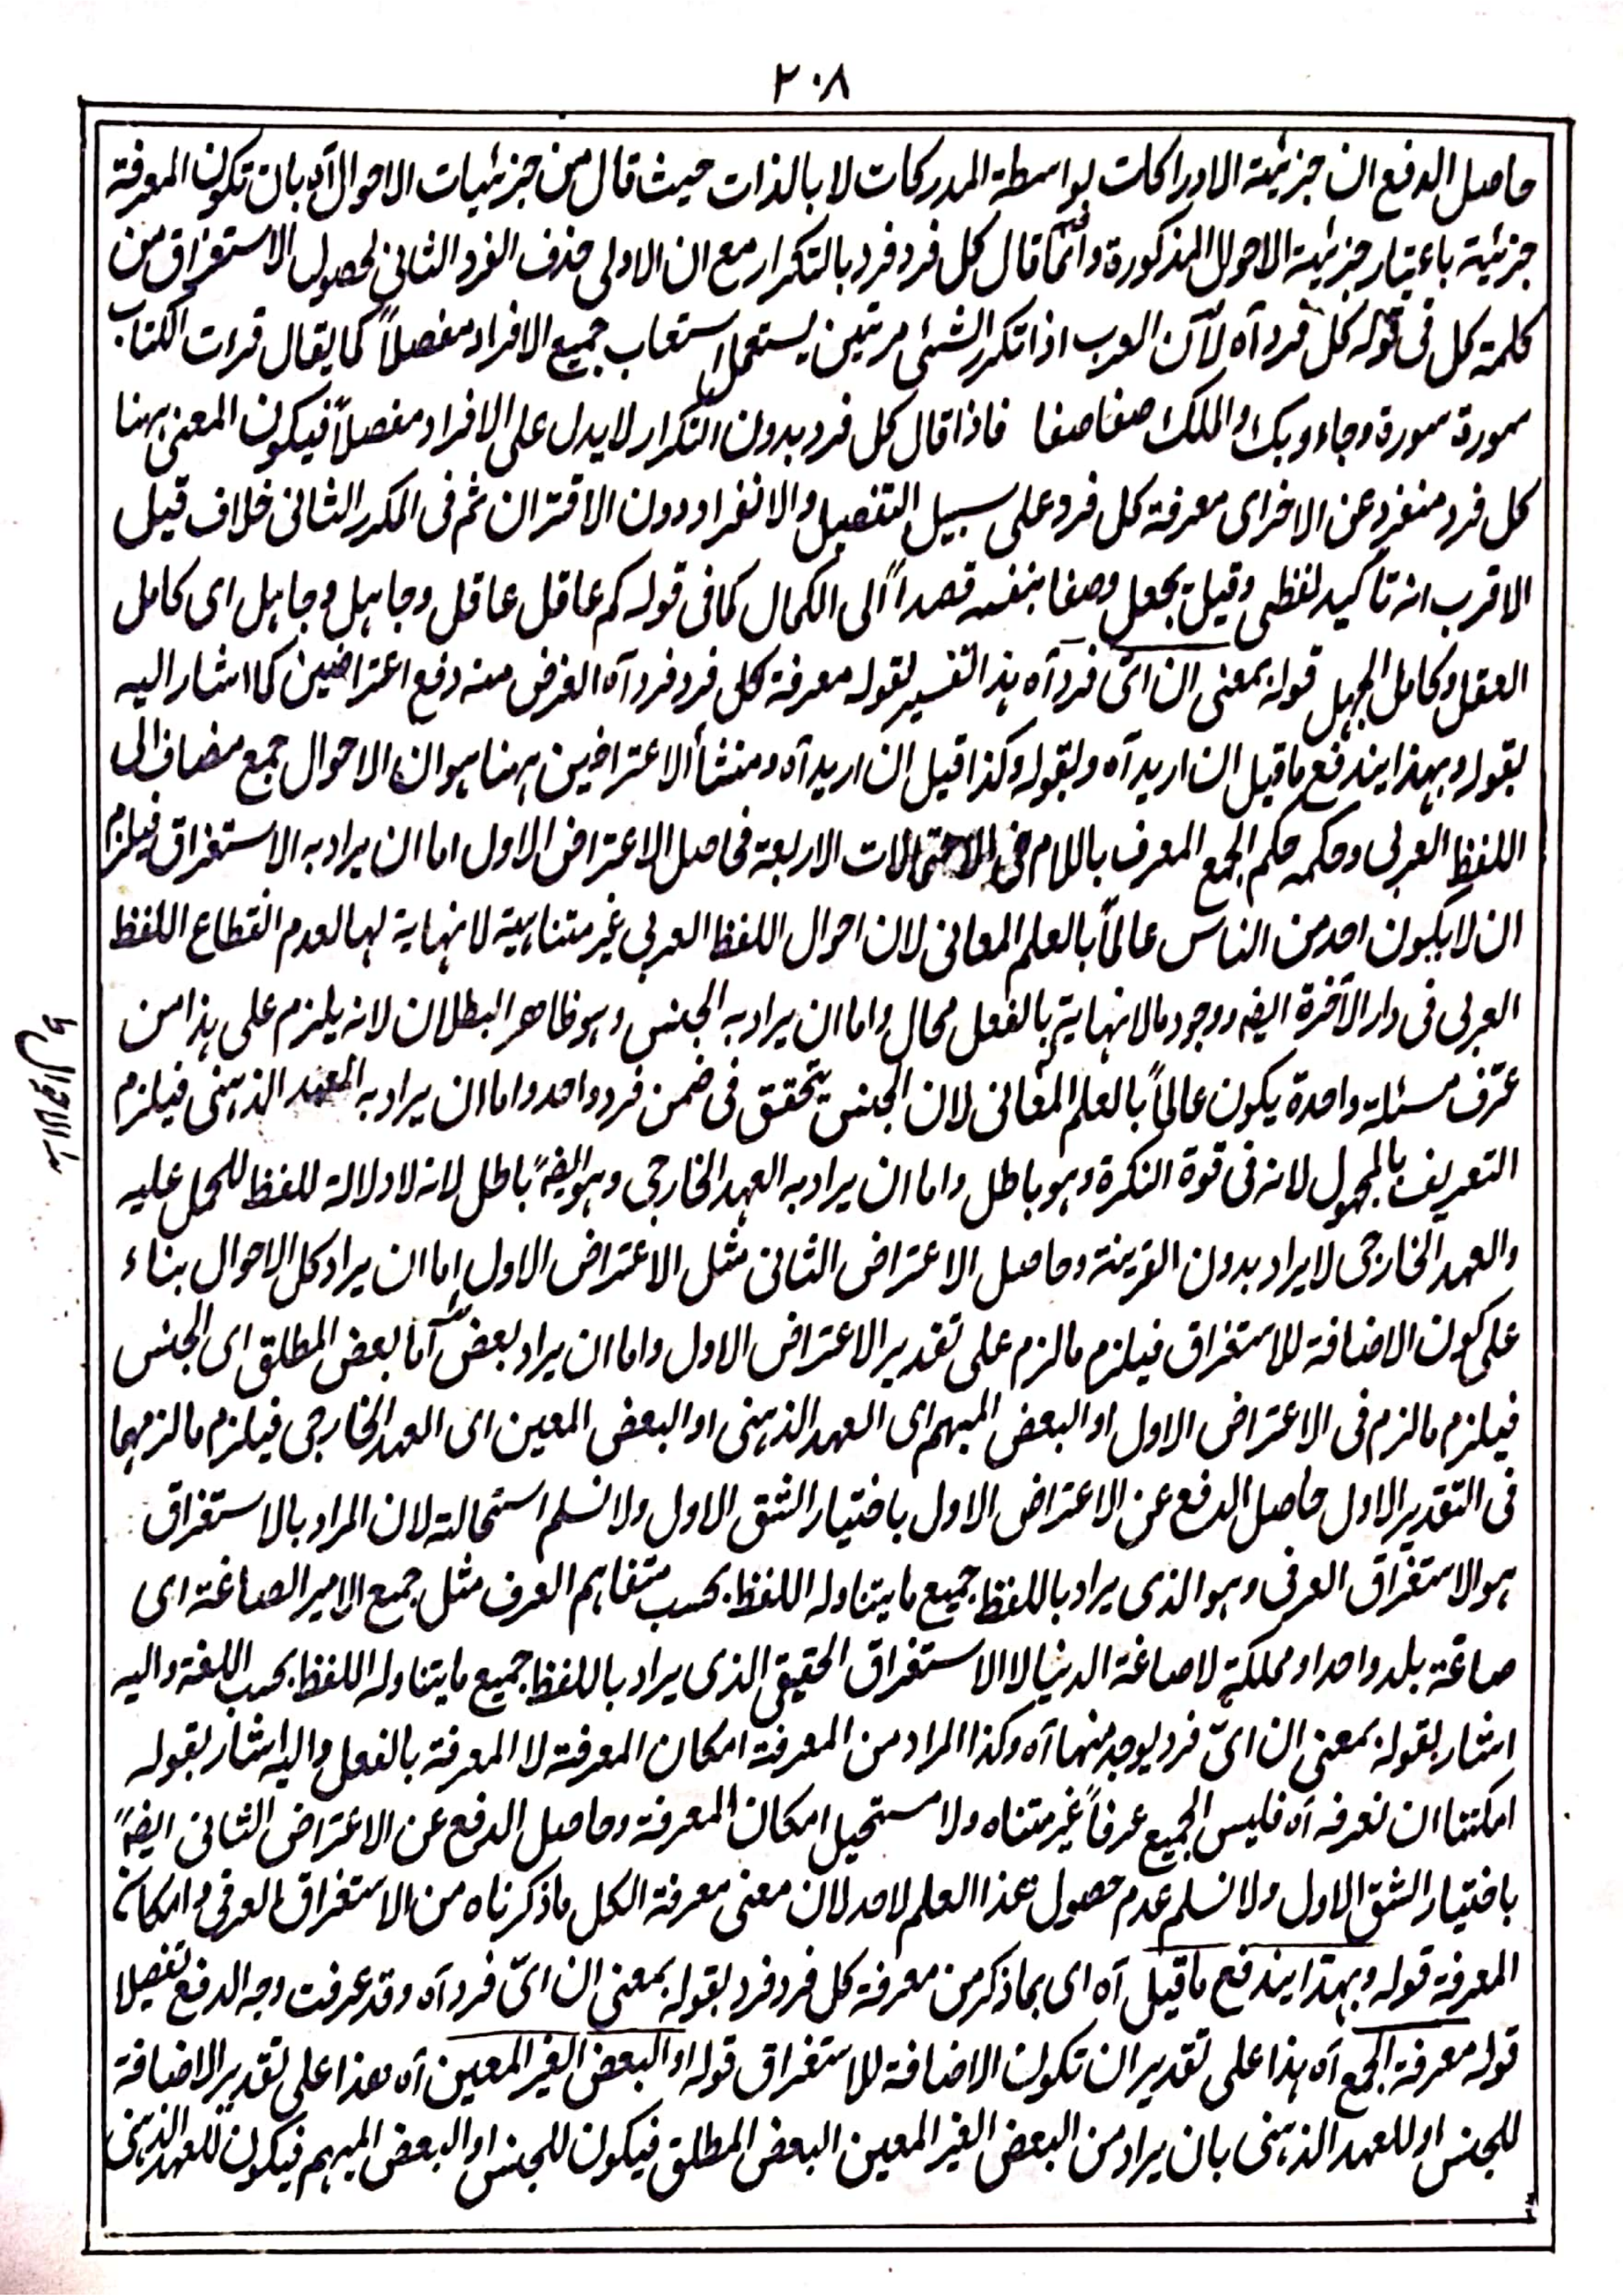 ٢٠٨
حاصل الدفع ان جزئية الادراكات بواسطة المدركات لا بالذات حيث قال من جزئيات الاحوال آه بان تكون المعرفة
جزئية باعتبار جزئية الاحوال المذكورة وانما قال كل فرد فرد بالتكرار مع ان الاولى حذف الفرد الثانى لحصول الاستغراق من
كلمة كل فى قوله كل فرد آه لآن العرب اذا تكرر الشئ مرتين يستعمل استعاب جميع الافراد مفصلاً كما يقال قرءت الكتاب
سورة سورة وجاء ربك والملك صفا صفا فاذا قال كل فرد بدون التكرار لا يدل على الافراد مفصلاً فيكون المعنى ههنا
كل فرد منفرد عن الاخر اى معرفة كل فرد على سبيل التفصيل والانفراد دون الاقتران ثم فى المكرر الثانى خلاف قيل
الاقرب انه تأكيد لفظى وقيل يجعل وصفا بنفسه قصداً الى الكمال كما فى قوله كم عاقل عاقل وجاهل وجاهل اى كامل
العقل وكامل الجهل قوله بمعنى ان اىّ فرد آه هذا تفسير لقوله معرفة كل فرد فرد آه الغرض منه دفع اعتراضين كما اشار اليه
بقوله وبهذا يندفع ما قيل ان اريد آه وبقوله وكذا قيل ان اريد آه ومنشأ الاعتراضين ههنا هو ان الاحوال جمع مضاف الى
اللفظ العربى وحكمه حكم الجمع المعرف باللام فى الاحتمالات الاربعة فحاصل الاعتراض الاول اما ان يراد به الاستغراق فيلزم
ان لا يكون احد من الناس عالماً بالعلم المعانى لان احوال اللفظ العربى غير متناهية لا نهاية لها لعدم انقطاع اللفظ
العربى فى دار الآخرة ايضه ووجود مالا نهاية بالفعل محال واما ان يراد به الجنس وهو ظاهر البطلان لانه يلزم على هذا من
عرّف مسئلة واحدة يكون عالماً بالعلم المعانى لان الجنس يتحقق فى ضمن فرد واحد واما ان يراد به العهد الذهنى فيلزم
التعريف بالمجهول لانه فى قوة النكرة وهو باطل واما ان يراد به العهد الخارجى وهو ايضهً باطل لانه لا دلالة للفظ للحمل عليه
والعهد الخارجى لا يراد بدون القرينة وحاصل الاعتراض الثانى مثل الاعتراض الاول اما ان يراد كل الاحوال بناء
على كون الاضافة للاستغراق فيلزم ما لزم على تقدير الاعتراض الاول واما ان يراد بعض اما بعض المطلق اى الجنس
فيلزم ما لزم فى الاعتراض الاول او البعض المبهم اى العهد الذهنى او البعض المعين اى العهد الخارجى فيلزم ما لزمهما
فى التقدير الاول حاصل الدفع عن الاعتراض الاول باختيار الشق الاول ولا نسلم استحالته لان المراد بالاستغراق
هو الاستغراق العرفى وهو الذى يراد باللفظ جميع ما يتناوله اللفظ بحسب متفاهم العرف مثل جمع الامير الصاغة اى
صاغة بلد واحد او مملكة لا صاغة الدنيا لا الاستغراق الحقيقى الذى يراد باللفظ جميع ما يتناوله اللفظ بحسب اللغة واليه
اشار بقوله بمعنى ان اىّ فرد يوجد منها آه وكذا المراد من المعرفة امكان المعرفة لا المعرفة بالفعل واليه اشار بقوله
امكننا ان نعرفه آه فليس الجميع عرفاً غير متناه ولا مستحيل امكان المعرفة وحاصل الدفع عن الاعتراض الثانى ايضهً
باختيار الشق الاول ولا نسلم عدم حصول هذا العلم لاحد لان معنى معرفة الكل ما ذكرناه من الاستغراق العرفى وامكان
المعرفة قوله وبهذا يندفع ما قيل آه اى بما ذكر من معرفة كل فرد فرد بقوله بمعنى ان اىّ فرد آه وقد عرفت وجه الدفع تفصيلا
قوله معرفة الجمع آه هذا على تقدير ان تكون الاضافة للاستغراق قوله او البعض الغير المعين آه هذا على تقدير الاضافة
للجنس او للعهد الذهنى بان يراد من البعض الغير المعين البعض المطلق فيكون للجنس او البعض المبهم فيكون للعهد الذهنى